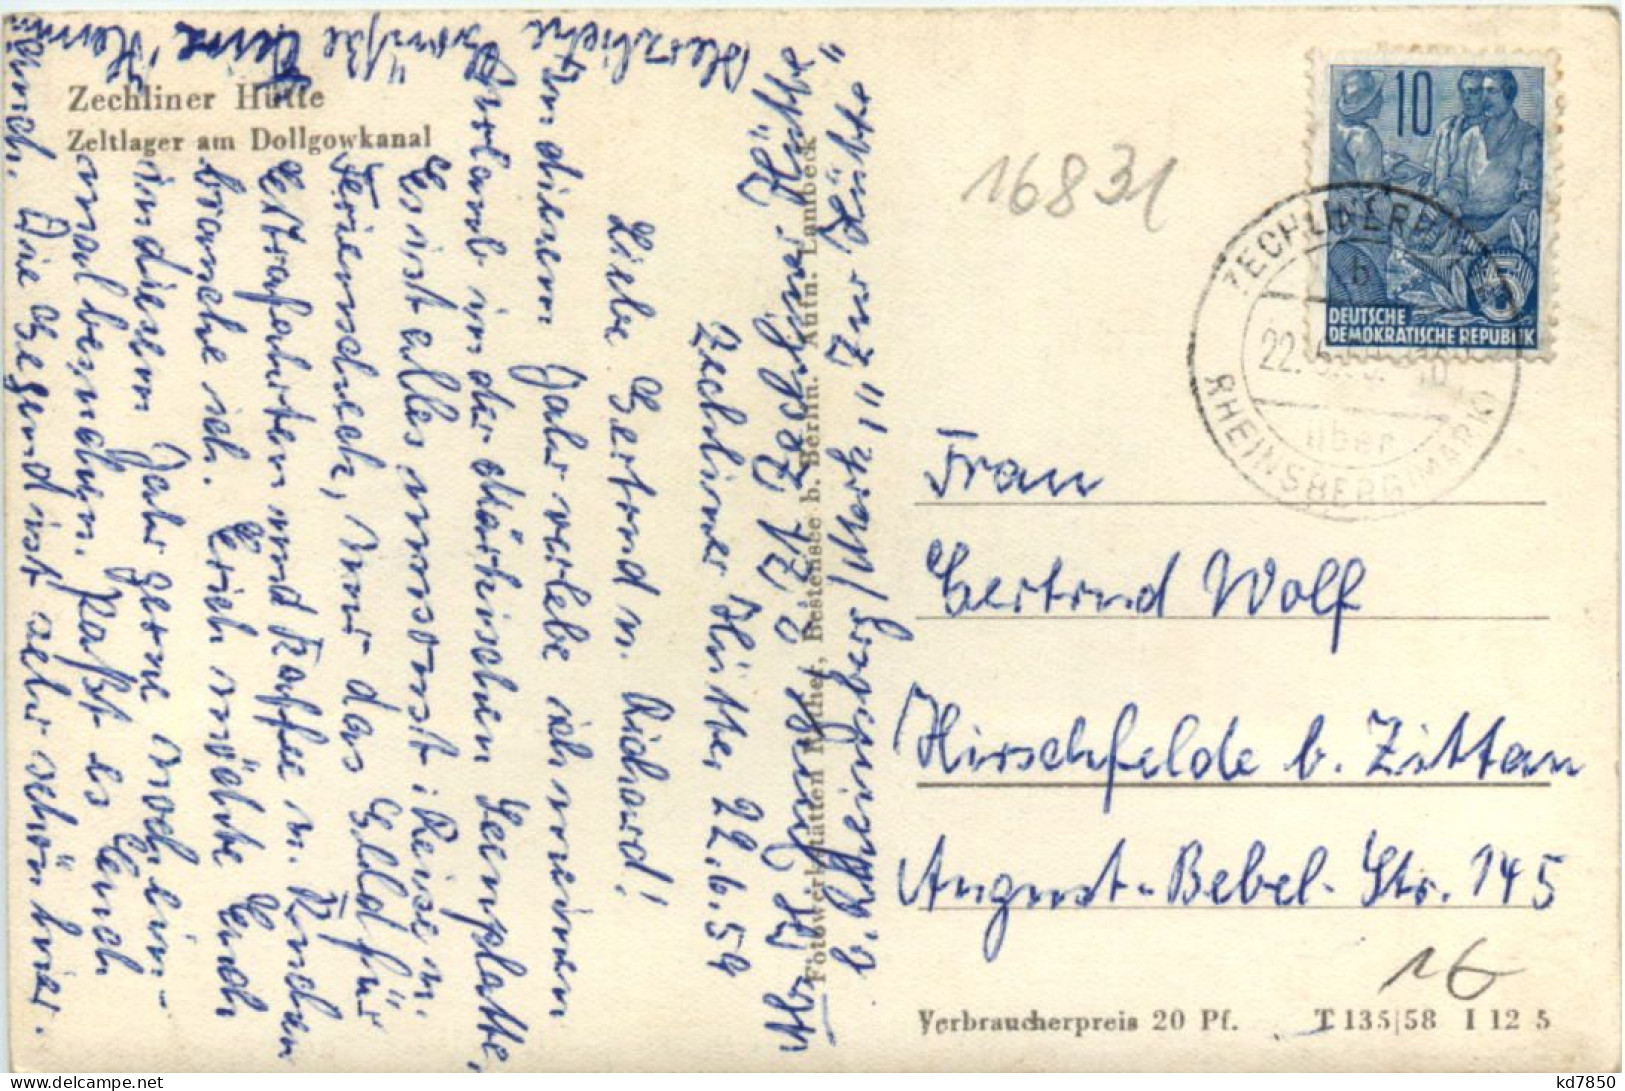 Zechliner Hütte
Zeltlager am Dollgowkanal
Zechliner Hütte, 22.6.59
Liebe Gertrud u. Richard!
In diesem Jahr verlebe ich meinen
Urlaub in der Märkischen Seenplatte,
Es ist alles umsonst: Reise u.
Ferienscheck, nur das Geld für
Extrafahrten und Kaffee u. Kuchen
brauche ich. Erich möchte Euch
in diesem Jahr gerne noch ein-
mal besuchen. Paßt es Euch
Die Gegend ist sehr schön hier.
Herzliche Grüße
Zechliner Hütte
b. Rheinsberg/Mark "Zur Hütte"
Fotowerkstätten Bestensee b. Berlin. Aufn. Lambeck
16831
10
5
DEUTSCHE
DEMOKRATISCHE REPUBLIK
ZECHLINERHÜTTE
b
22.6.59
über
RHEINSBERG (MARK)
Frau
Gertrud Wolf
Hirschfelde b. Zittau
August-Bebel-Str. 145
16
Verbraucherpreis 20 Pf. T 135/58 I 12 5
kd7850